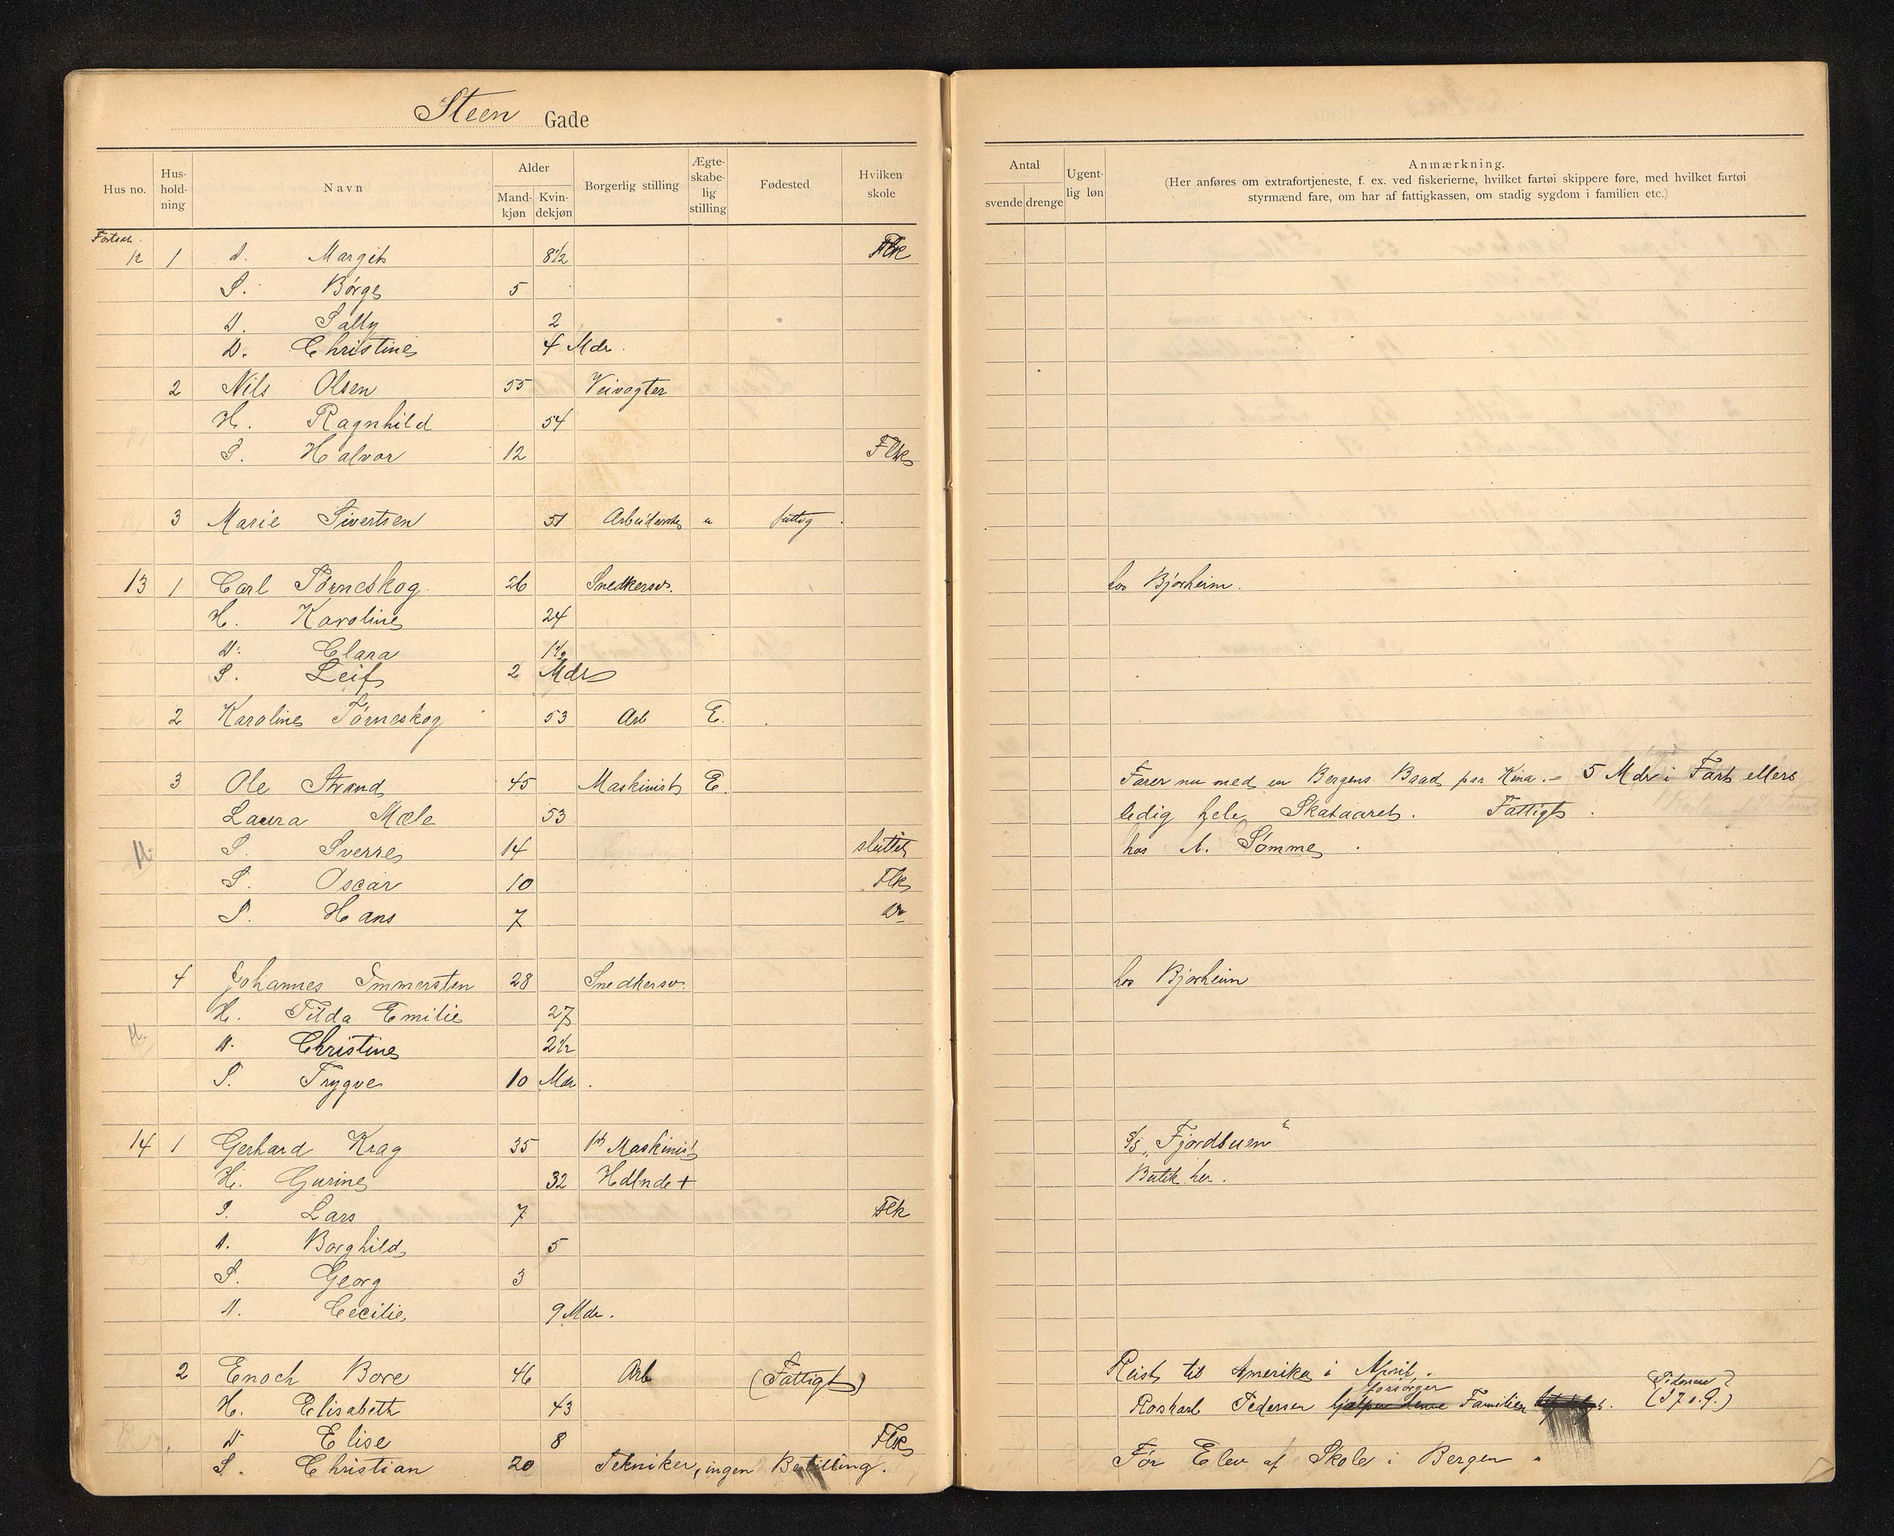 Steen Gade
Hus no. Hus-hold-ning Navn Alder Mand-kjøn Kvin-dekjøn Borgerlig stilling Ægte-skabe-lig stilling Fødested Hvilken skole
Antal svende drenge Ugent-lig løn Anmærkning.
(Her anføres om extrafortjeneste, f. ex. ved fiskerierne, hvilket fartøi skippere føre, med hvilket fartøi
styrmænd fare, om har af fattigkassen, om stadig sygdom i familien etc.)
Fortsat.
12 1 D. Margit 8½ Flk
S. Børge 5
D. Sally 2
D. Christine 4 Mdr.
2 Nils Olsen 55 Veivogter
H. Ragnhild 54
S. Halvor 12 Flk
3 Marie Sivertsen 51 fattig
13 1 Carl Tørneskog 26 Snedkersv. hos Bjørheim.
H. Karoline 24
D. Clara 1½
S. Leif 2 Mdr
2 Karoline Tørneskog 53 Arb E.
3 Ole Strand 45 Maskinist E. Farer nu med en Bergens Baad paa Kina. - 5 Mdr i Fart ellers
Laura Mæle 53 ledig hele Skataaret. Fattigt.
S. Sverre 14 sluttet hos A. Sømme.
S. Oscar 10 Flk
S. Hans 7 Do
4 Johannes Immersten 28 Snedkersv. hos Bjørheim
H. Tilda Emilie 27
D. Christine 2½
S. Trygve 10 Mdr.
14 1 Gerhard Krag 35 1ste Maskinist S/S "Fjordbuen"
H. Gurine 32 Hdlnde + Butik her.
S. Lars 7 Flk
D. Borghild 5
S. Georg 3
D. Cecilie 9 Mdr.
2 Enoch Bore 46 Arb (Fattigt) Reist til Amerika i April.
H. Elisabeth 43 Pedersen hjælper denne forsørger Familien
D. Elise 8 Flk
S. Christian 20 Tekniker, ingen Bestilling. Før Elev af Skole i Bergen.